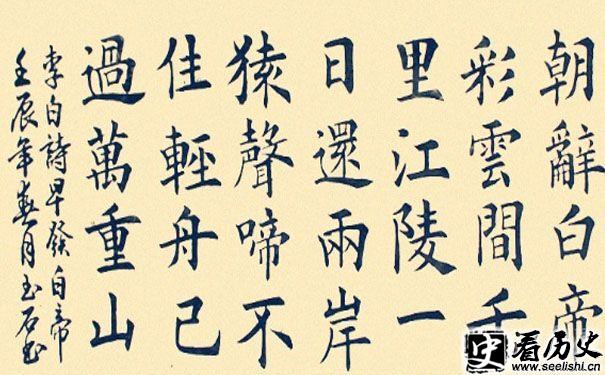 朝辭白帝
彩雲間千
里江陵一
日還兩岸
猿聲啼不
住輕舟已
過萬重山
李白詩早發白帝
壬辰年春月玉石書
史 看历史
www.seelishi.cn